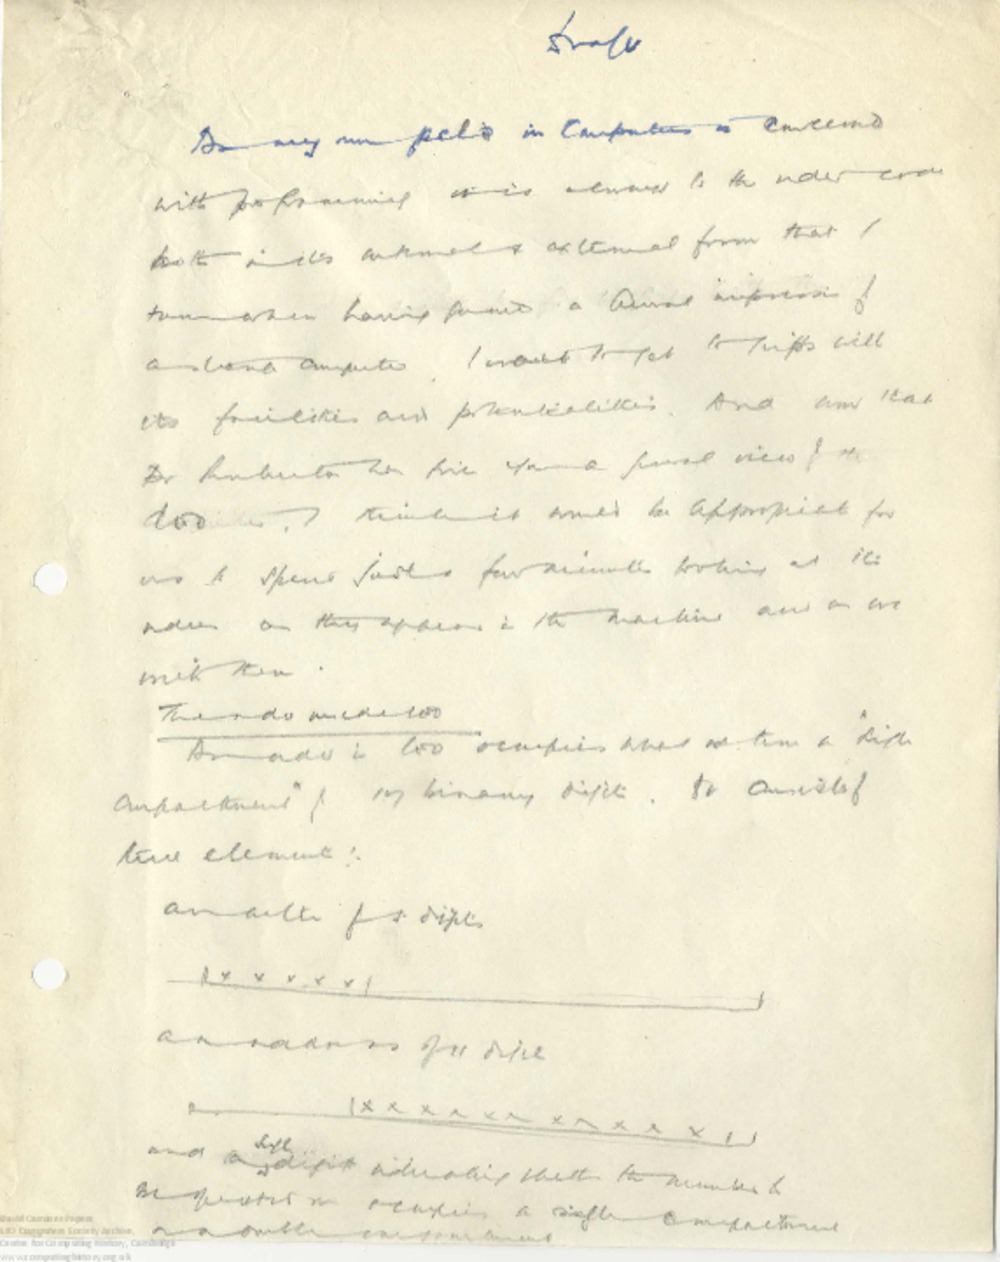 Draft
in Computers is concerned
with programming is always to the order code
both in its internal & external form that I
turn when having formed a general impression of
computer. I want to get to grips with
its facilities and potentialities. And now that
Dr has given you a general view of the
LEO I think it would be appropriate for
us to spend just a few minutes looking at its
orders as they appear in the machine and as we
write them.
The order inside LEO
An order in LEO occupies what we term a "single
compartment" of 17 binary digits. It consists of
three elements:
an action of 5 digits
x x x x x
an address of 11 digits
x x x x x x x x x x x
and a single digit indicating whether the number to
be operated on occupies a single compartment
or a double compartment
David Caminer Papers
LEO Computers Society Archive,
Centre for Computing History, Cambridge
www.computinghistory.org.uk